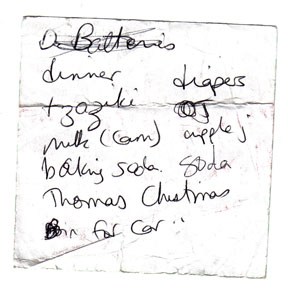 D Batteries
dinner diapers
tzaziki OJ
milk (Cam) apple j
baking soda. soda
Thomas Christmas
for car